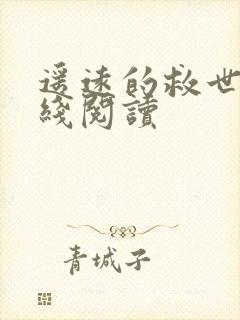 遥远的救世
綫閱讀
青城子